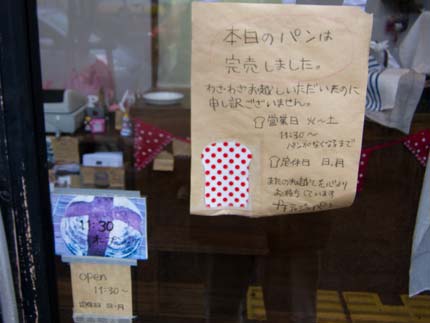 本日のパンは
完売しました。
わざわざお越しいただいたのに
申し訳ございません。
営業日 火〜土
11:30〜
パンがなくなるまで
定休日 日、月
またのお越しを心より
お待ちしています
11:30
open
11:30〜
定休日 日・月